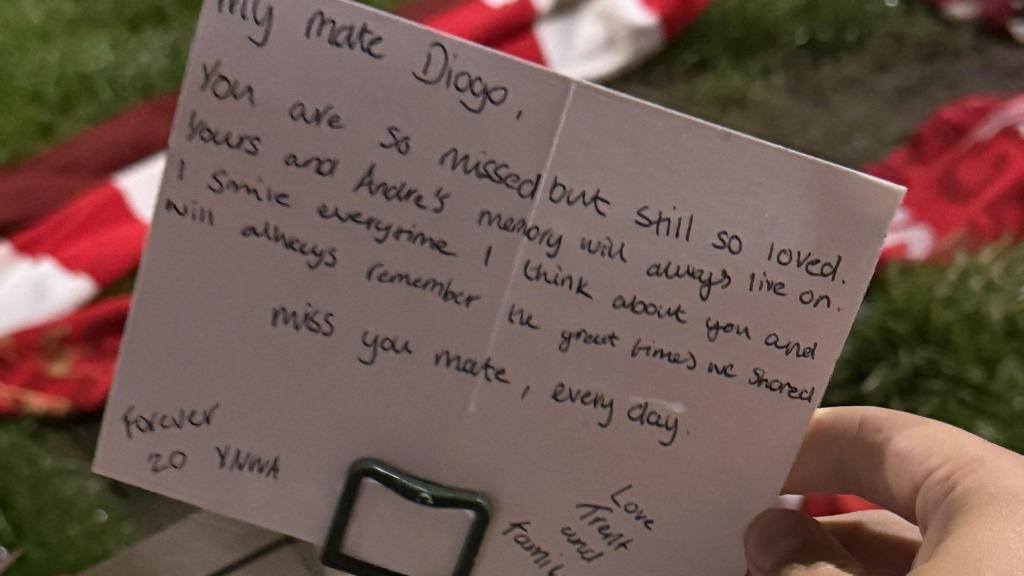 My mate Diogo,
You are so missed but still so loved.
Yours and Andre's memory will always live on.
I smile everytime I think about you and
will always remember the great times we shared
miss you mate, every day.
forever
20 YNWA
Love
Trent
and
Famil